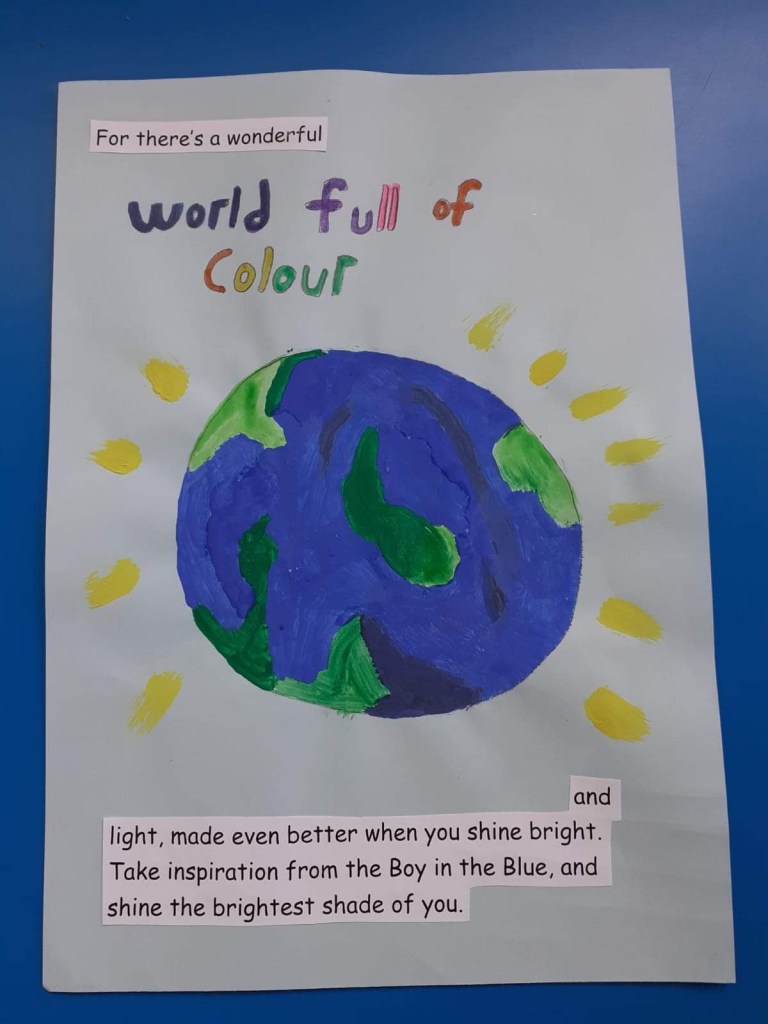 For there's a wonderful
world full of
Colour
and
light, made even better when you shine bright.
Take inspiration from the Boy in the Blue, and
shine the brightest shade of you.